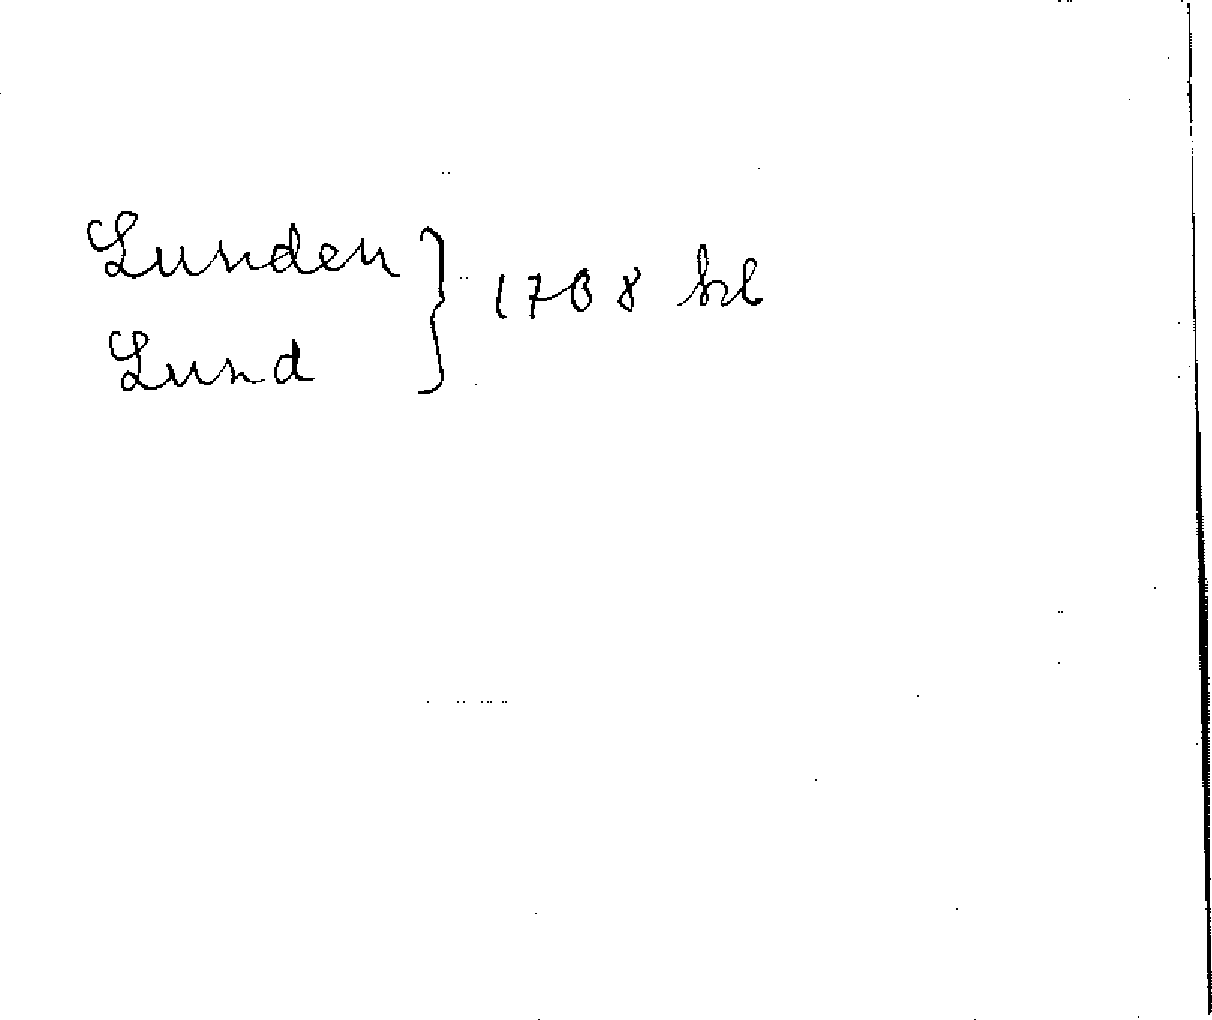 Lunden
Lund
} 1708 hrl